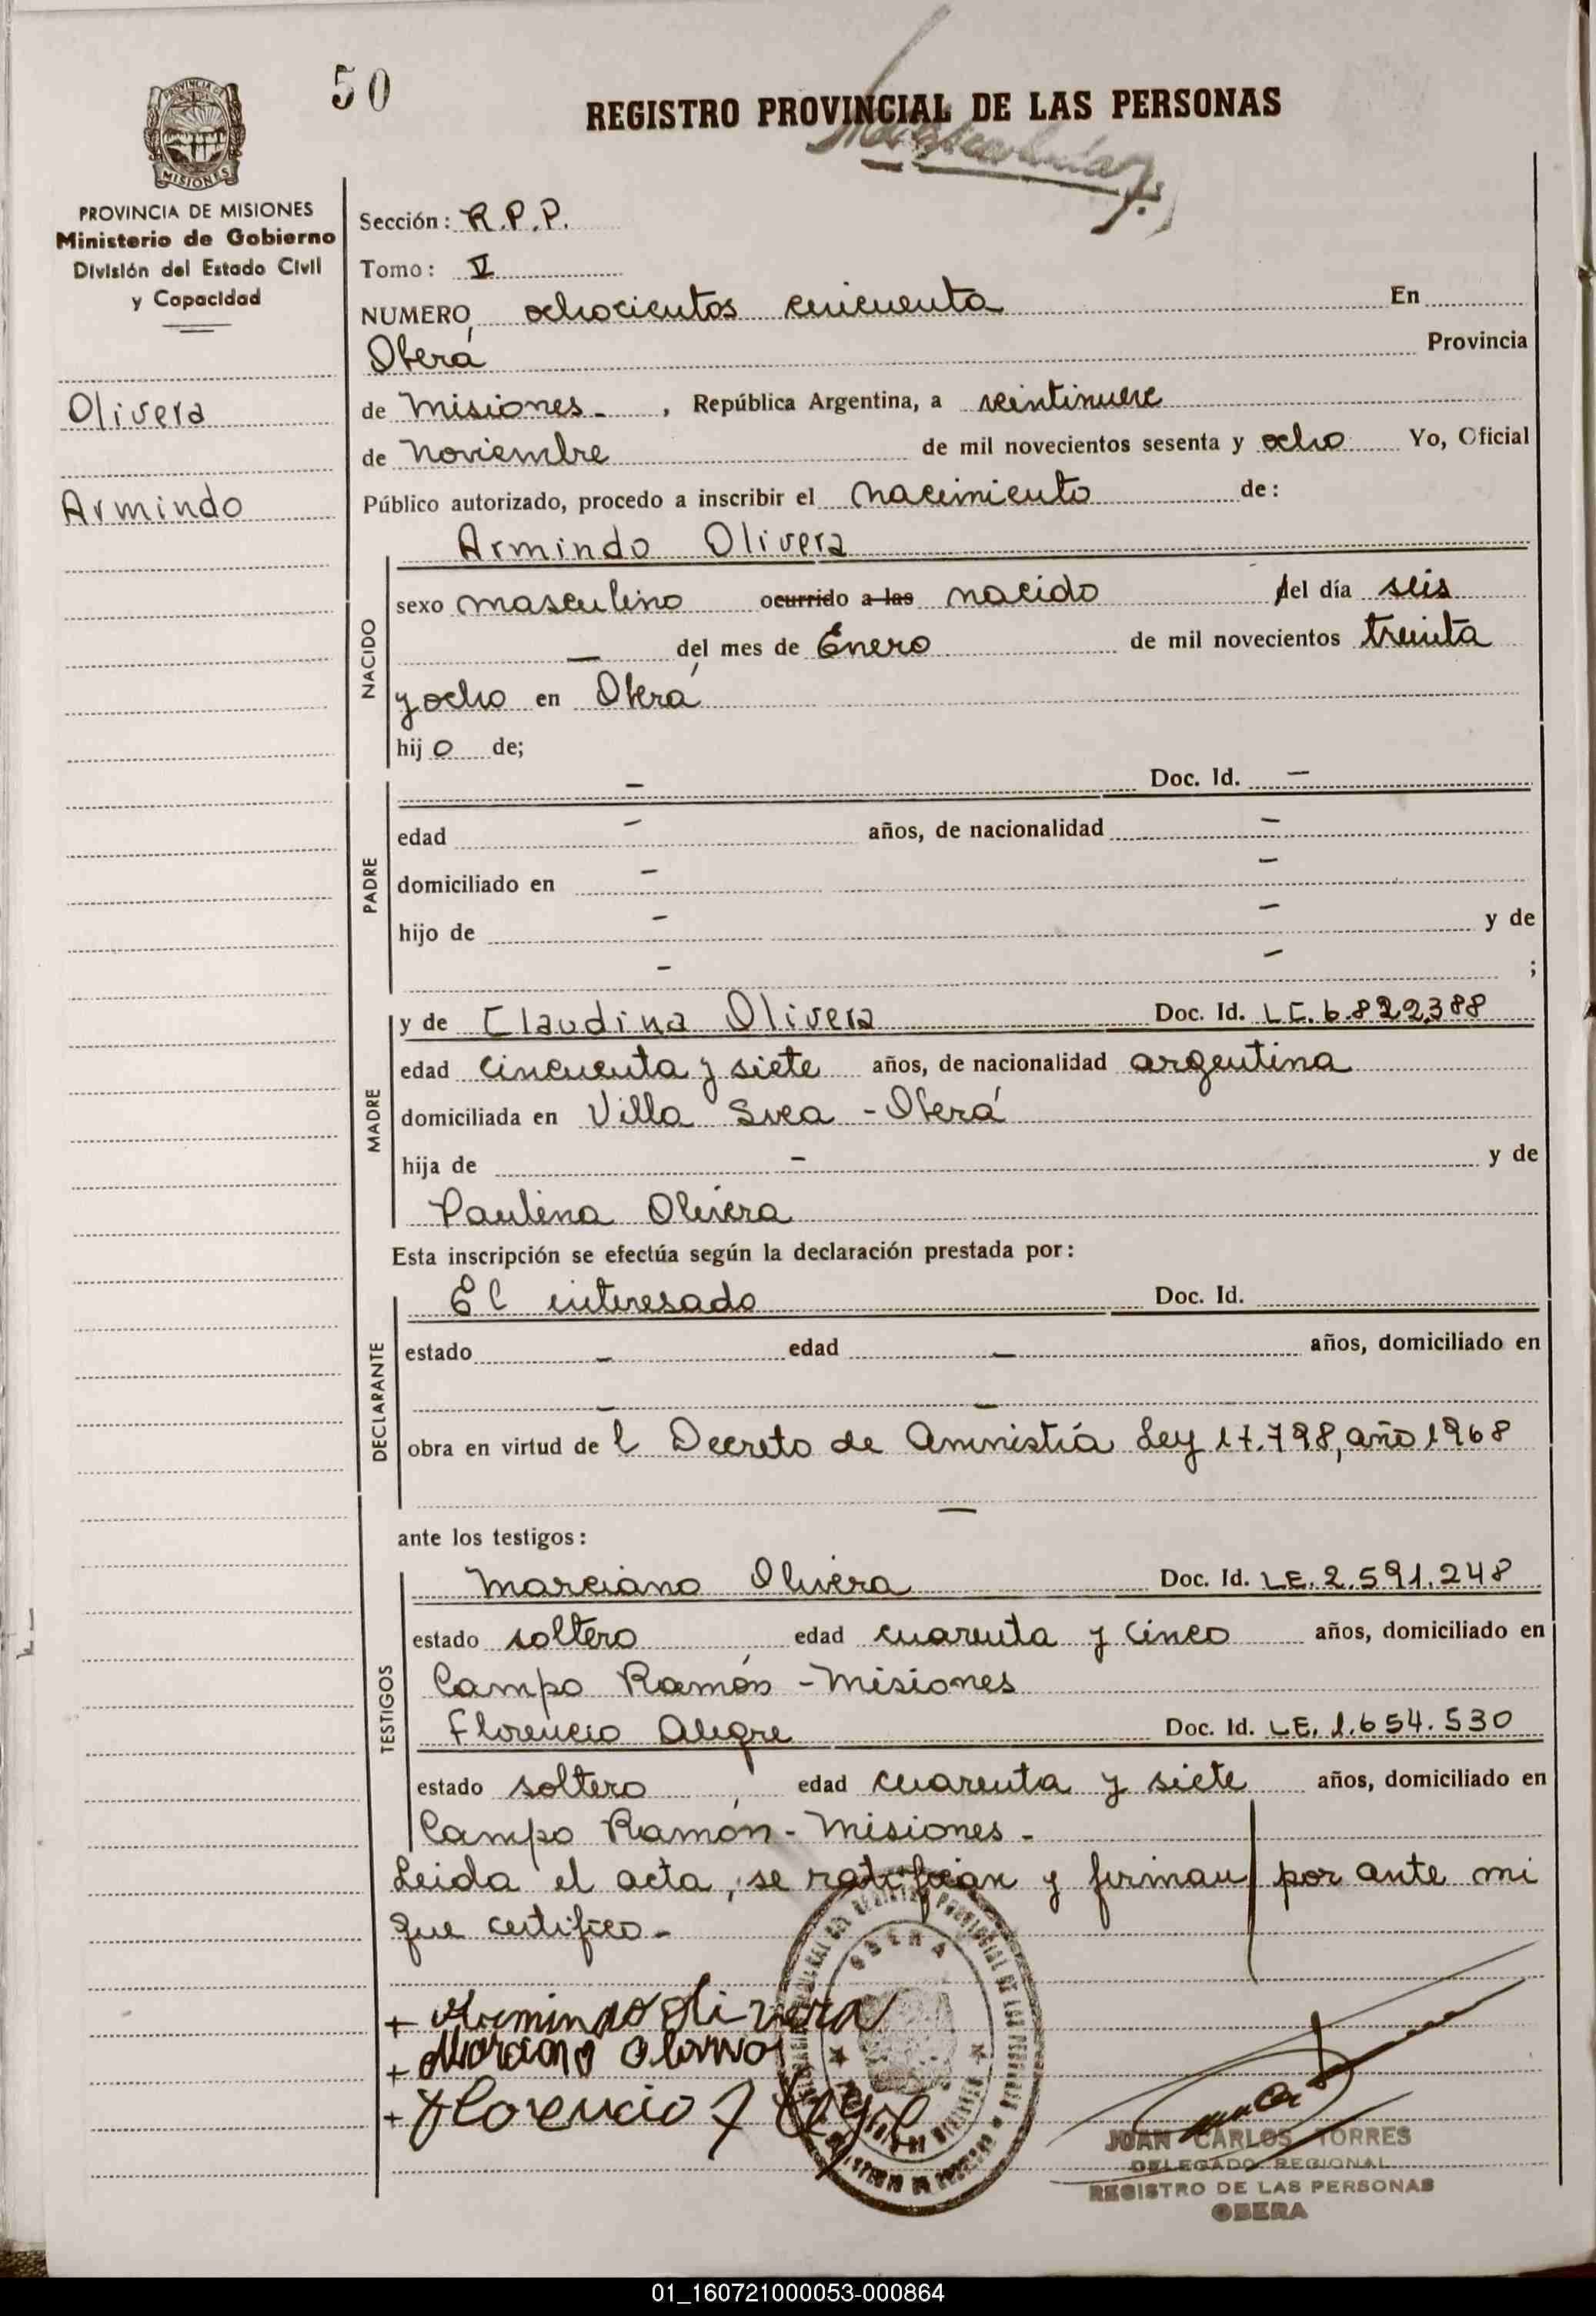 50
REGISTRO PROVINCIAL DE LAS PERSONAS
PROVINCIA DE MISIONES
Ministerio de Gobierno
División del Estado Civil
y Capacidad
Olivera
Armindo
Sección: R.P.P.
Tomo: V
NUMERO ochocientos cincuenta En
Oberá Provincia
de Misiones - , República Argentina, a veintinueve
de Noviembre de mil novecientos sesenta y ocho Yo, Oficial
Público autorizado, procedo a inscribir el nacimiento de:
Armindo Olivera
NACIDO
sexo masculino ocurrido a las nacido del día seis
— del mes de Enero de mil novecientos treinta
y ocho en Oberá
hijo de;
PADRE
— Doc. Id. —
edad — años, de nacionalidad —
domiciliado en — —
hijo de — — y de
— — ;
MADRE
y de Claudina Olivera Doc. Id. LC. 6.822.388
edad cincuenta y siete años, de nacionalidad argentina
domiciliada en Villa Svea - Oberá
hija de — y de
Paulina Olivera
Esta inscripción se efectúa según la declaración prestada por:
DECLARANTE
El interesado Doc. Id.
estado — edad — años, domiciliado en
— —
obra en virtud de l Decreto de Amnistía Ley 17.798, año 1968
—
ante los testigos:
TESTIGOS
Marciano Olivera Doc. Id. LE. 2.591.248
estado soltero edad cuarenta y cinco años, domiciliado en
Campo Ramón - Misiones
Florencio Alegre Doc. Id. LE. 1.654.530
estado soltero , edad cuarenta y siete años, domiciliado en
Campo Ramón - Misiones -
Leida el acta, se ratifican y firman por ante mi
que certifico -
+ Armindo Olivera
+ Marciano
+ Florencio
OBERA
JUAN CARLOS TORRES
DELEGADO REGIONAL
REGISTRO DE LAS PERSONAS
OBERA
01_160721000053-000864